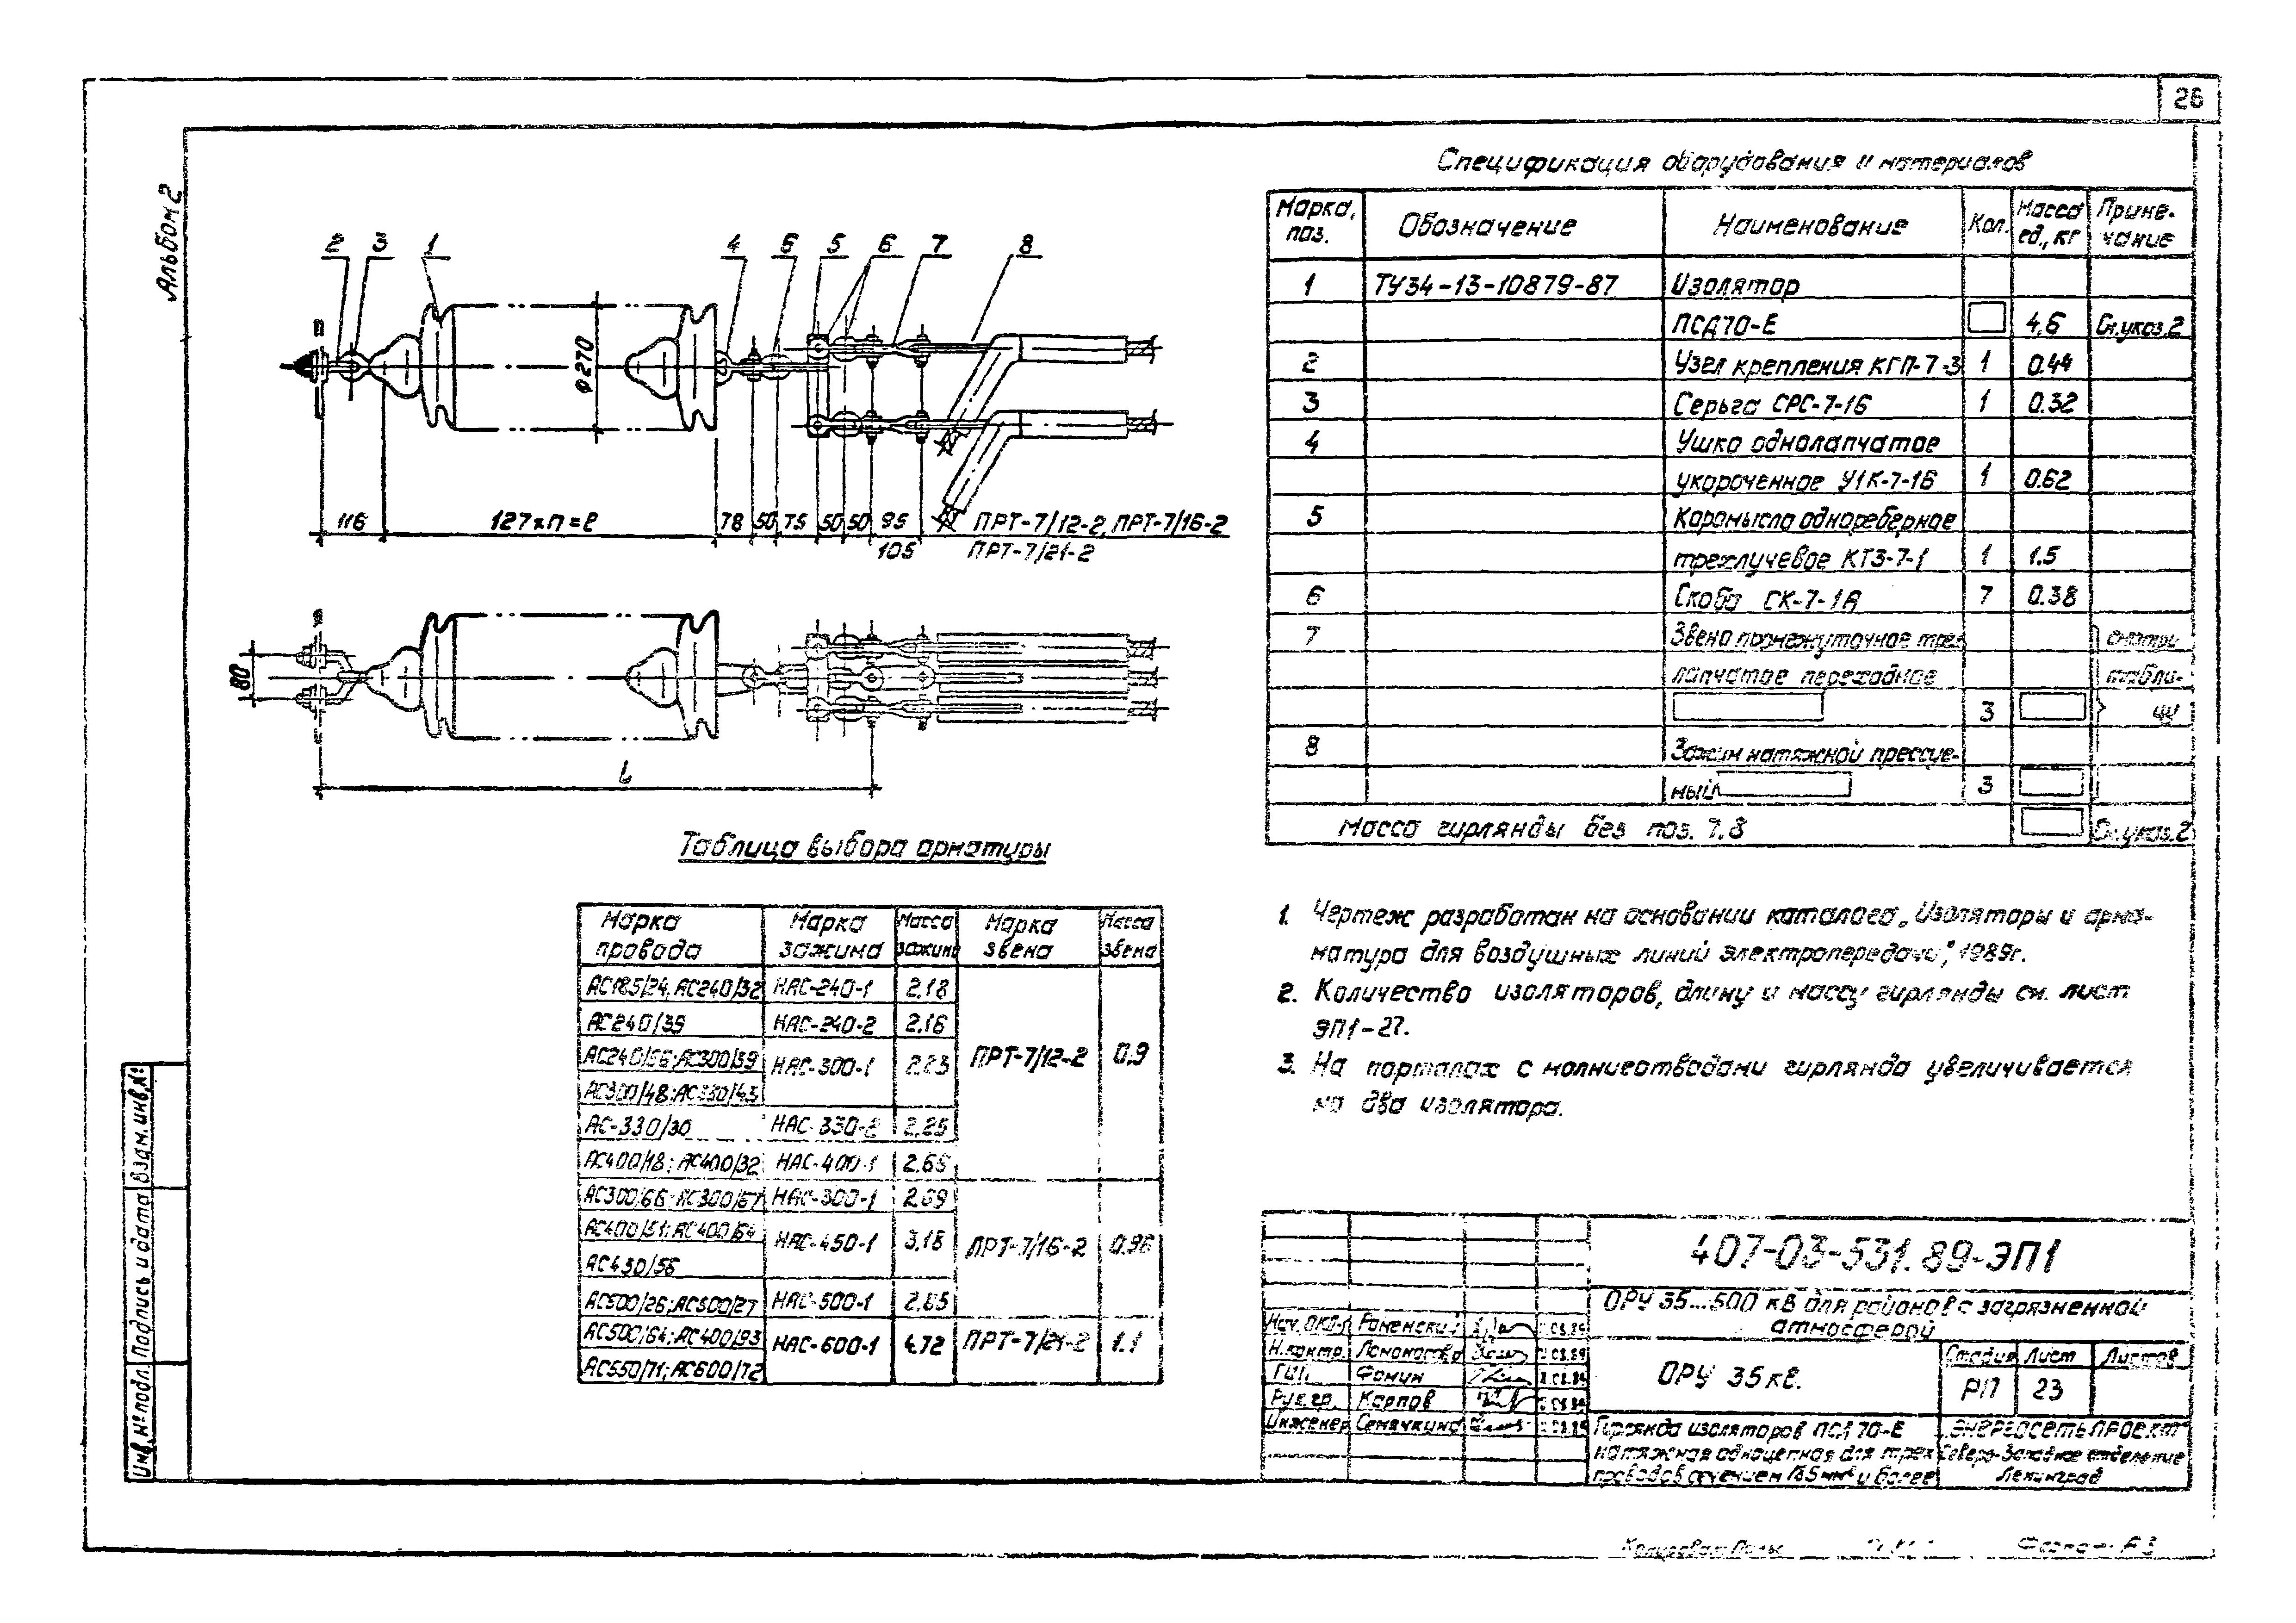 26
Альбом 2
Спецификация оборудования и материалов
Марка, поз. Обозначение Наименование Кол. Масса ед., кг Приме-чание
1 ТУ34-13-10879-87 Изолятор
ПСД70-Е 4,6 См.указ.2
2 Узел крепления КГП-7-3 1 0.44
3 Серьга СРС-7-16 1 0.32
4 Ушко однолапчатое
укороченное У1К-7-16 1 0.62
5 Коромысло однореберное
трехлучевое КТ3-7-1 1 1.5
6 Скоба СК-7-1А 7 0.38
7 Звено промежуточное трех
лапчатое переходное
3
смотри
табли-
цу
8 Зажим натяжной прессуе-
мый 3
Масса гирлянды без поз. 7.8 См.указ.2
2 3 1 4 6 5 6 7 8
ф270
116 127×п=ℓ 78 50 75 50 50 95 ПРТ-7/12-2, ПРТ-7/16-2
105 ПРТ-7/21-2
80
L
Таблица выбора арматуры
Марка провода Марка зажима Масса зажима Марка звена Масса звена
АС185/24, АС240/32 НАС-240-1 2.18
АС240/39 НАС-240-2 2.16
АС240/56; АС300/39 НАС-300-1 2.23 ПРТ-7/12-2 0.9
АС300/48; АС330/43
АС-330/30 НАС-330-2 2.25
АС400/18; АС400/32 НАС-400-1 2.65
АС300/66; АС300/67 НАС-300-1 2.69
АС400/51; АС400/64 НАС-450-1 3.18 ПРТ-7/16-2 0.96
АС450/56
АС500/26; АС500/27 НАС-500-1 2.85
АС500/64; АС400/93 НАС-600-1 4.72 ПРТ-7/21-2 1.1
АС550/71; АС600/72
1. Чертеж разработан на основании каталога „Изоляторы и арма-
матура для воздушных линий электропередачи", 1989г.
2. Количество изоляторов, длину и массу гирлянды см. лист
ЭП1-27.
3. На порталах с молниеотводами гирлянда увеличивается
на два изолятора.
Взам. инв.№
Подпись и дата
Инв.№ подл.
407-03-531.89-ЭП1
ОРУ 35...500 кВ для районов с загрязненной
атмосферой
Нач. ОКП-1 Роменский
Н.контр. Ломоносова
ГИП Фомин
Рук.гр. Карпов
Инженер Семячкина
ОРУ 35кВ.
Стадия Лист Листов
РП 23
Гирлянда изоляторов ПСД70-Е
натяжная одноцепная для трех
проводов сечением 185мм² и более
„Энергосетьпроект"
Северо-Западное отделение
Ленинград
Копировал
Формат А3